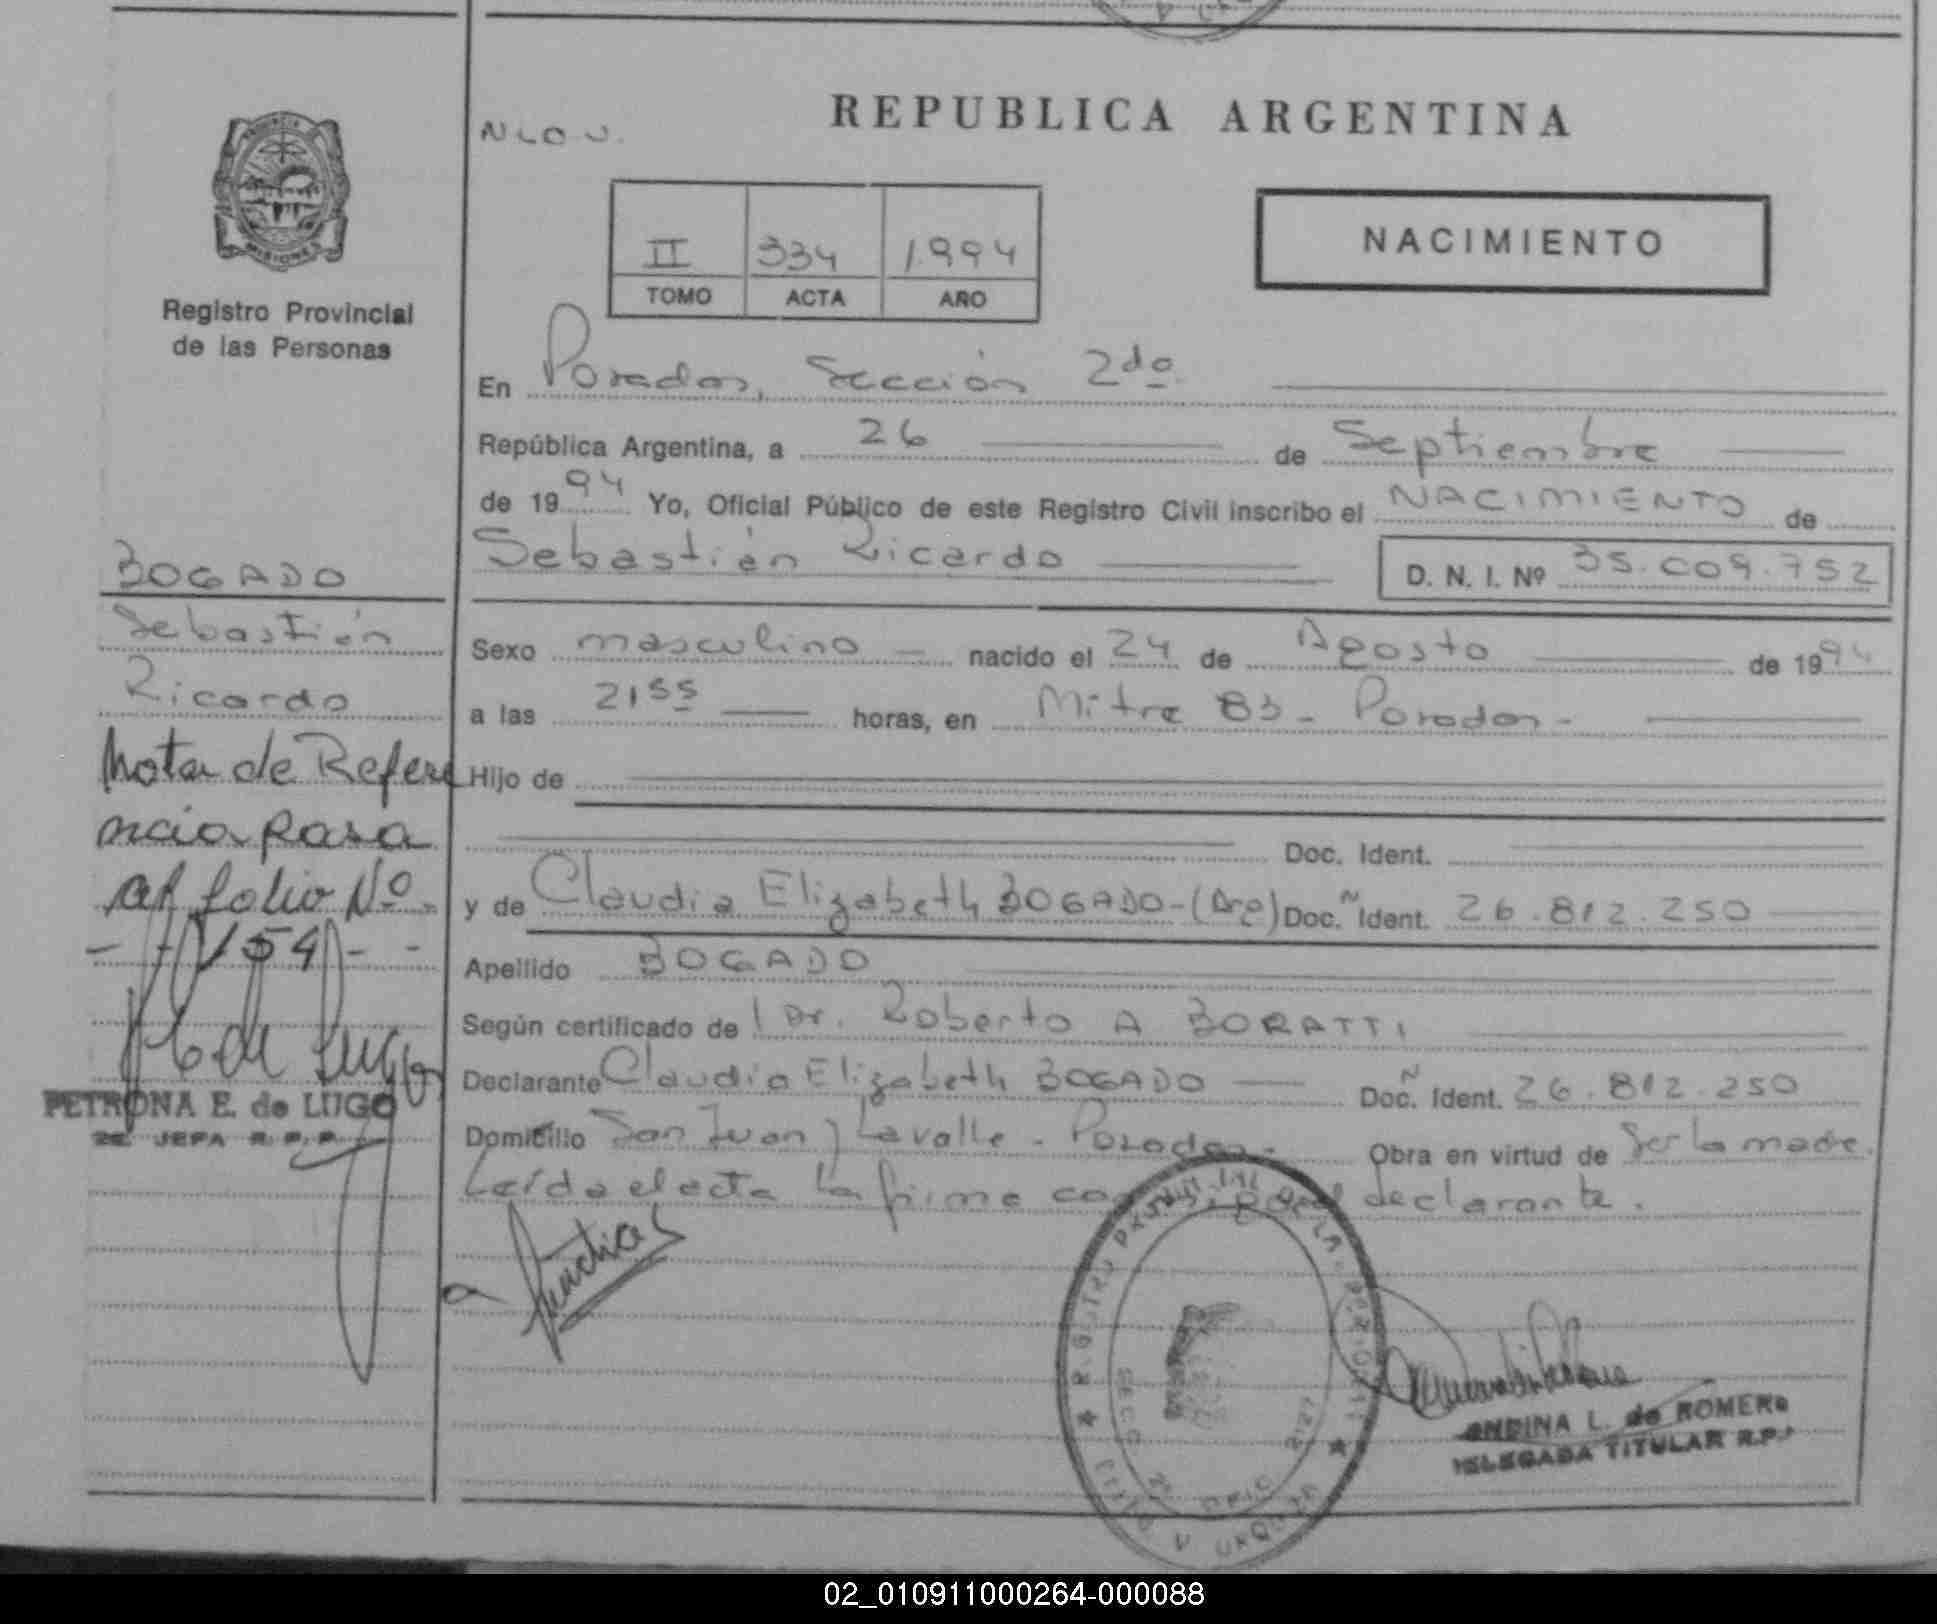 REPUBLICA ARGENTINA
PROVINCIA
MISIONES
Registro Provincial
de las Personas
NACIMIENTO
II 334 1.994
TOMO ACTA AÑO
En Posadas, Sección 2da.
República Argentina, a 26 de Septiembre
de 1994 Yo, Oficial Público de este Registro Civil inscribo el NACIMIENTO de
Sebastián Ricardo D. N. I. Nº 35.009.752
Sexo masculino nacido el 24 de Agosto de 1994
a las 2155 horas, en Mitre 83 - Posadas -
Hijo de
Doc. Ident.
y de Claudia Elizabeth BOGADO - (Arg) Doc. Ident. 26.812.250
Apellido BOGADO
Según certificado de Dr. Roberto A BORATTI
Declarante Claudia Elizabeth BOGADO Doc. Ident. 26.812.250
Domicilio San Juan y Lavalle - Posadas - Obra en virtud de ser la madre.
Leída el acta la firma declarante.
BOGADO
Sebastián
Ricardo
Nota de Refere
ncia pasa
al folio Nº
- - 154 - -
PETRONA E. de LUGO
JEFA R. P. P.
REGISTRO PROVINCIAL DE LAS PERSONAS
L. de ROMERO
DELEGADA TITULAR R.P.
02_010911000264-000088